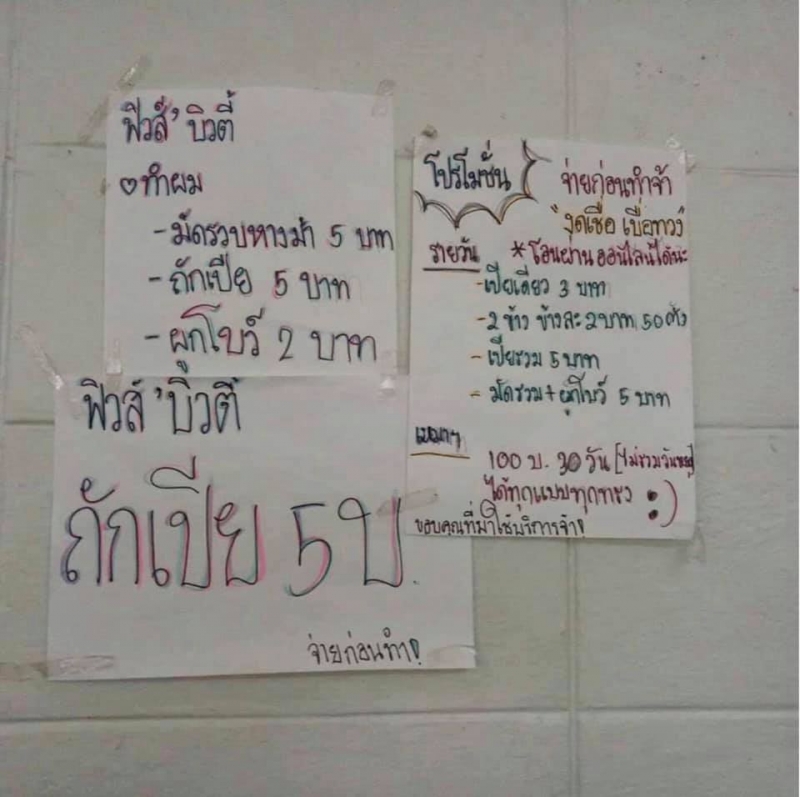 ฟิวส์'บิวตี้
ทำผม
- มัดรวบหางม้า 5 บาท
- ถักเปีย 5 บาท
- ผูกโบว์ 2 บาท
ฟิวส์'บิวตี้
ถักเปีย 5 บ.
จ่ายก่อนทำ!
โปรโมชั่น
จ่ายก่อนทำจ้า
"งดเชื่อ เบื่อทวง"
รายวัน *โอนผ่านออนไลน์ได้นะ
- เปียเดียว 3 บาท
- 2 ข้าง ข้างละ 2 บาท 50 ตัง
- เปียรวม 5 บาท
- มัดรวม + ผูกโบว์ 5 บาท
เหมาๆ
100 บ. 30 วัน [ไม่รวมวันหยุด]
ได้ทุกแบบทุกทรง :)
ขอบคุณที่มาใช้บริการจ้า!